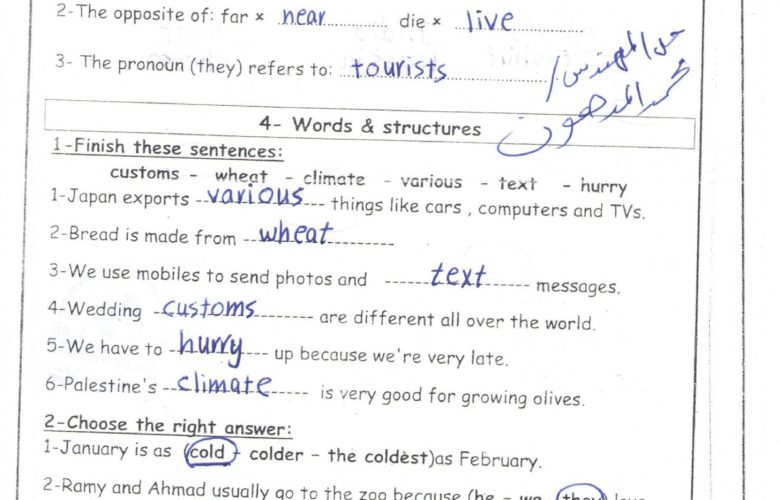 2-The opposite of: far × near die × live
3- The pronoun (they) refers to: tourists
حل المهندس/
محمد المدهون
4- Words & structures
1-Finish these sentences:
customs - wheat - climate - various - text - hurry
1-Japan exports various things like cars , computers and TVs.
2-Bread is made from wheat
3-We use mobiles to send photos and text messages.
4-Wedding customs are different all over the world.
5-We have to hurry up because we're very late.
6-Palestine's climate is very good for growing olives.
2-Choose the right answer:
1-January is as (cold - colder - the coldest)as February.
2-Ramy and Ahmad usually go to the zoo because (he - we they